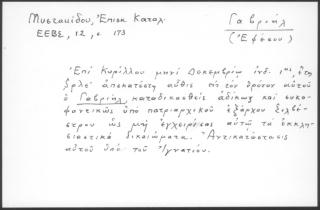 Μυστακίδου, Ἐπισκ. Καταλ.
ΕΕΒΣ, 12, σ. 173
Γαβριήλ
(Ἐφέσου)
Ἐπὶ Κυρίλλου μηνὶ Δεκεμβρίῳ ἰνδ.
ἀπεκατέστη αὖθις εἰς τὸν θρόνον αὐτοῦ
ὁ Γαβριήλ, καταδικασθεὶς ἀδίκως καὶ συκο-
φαντικῶς ὑπὸ πατριαρχικοῦ ἐξάρχου Σιλβέ-
στρου ὡς μὴ ἐγχειρίσας αὐτῷ τὰ ἐκκλη-
σιαστικὰ δικαιώματα. Ἀντικατάστασις
αὐτοῦ ὑπὸ τοῦ Ἰγνατίου.